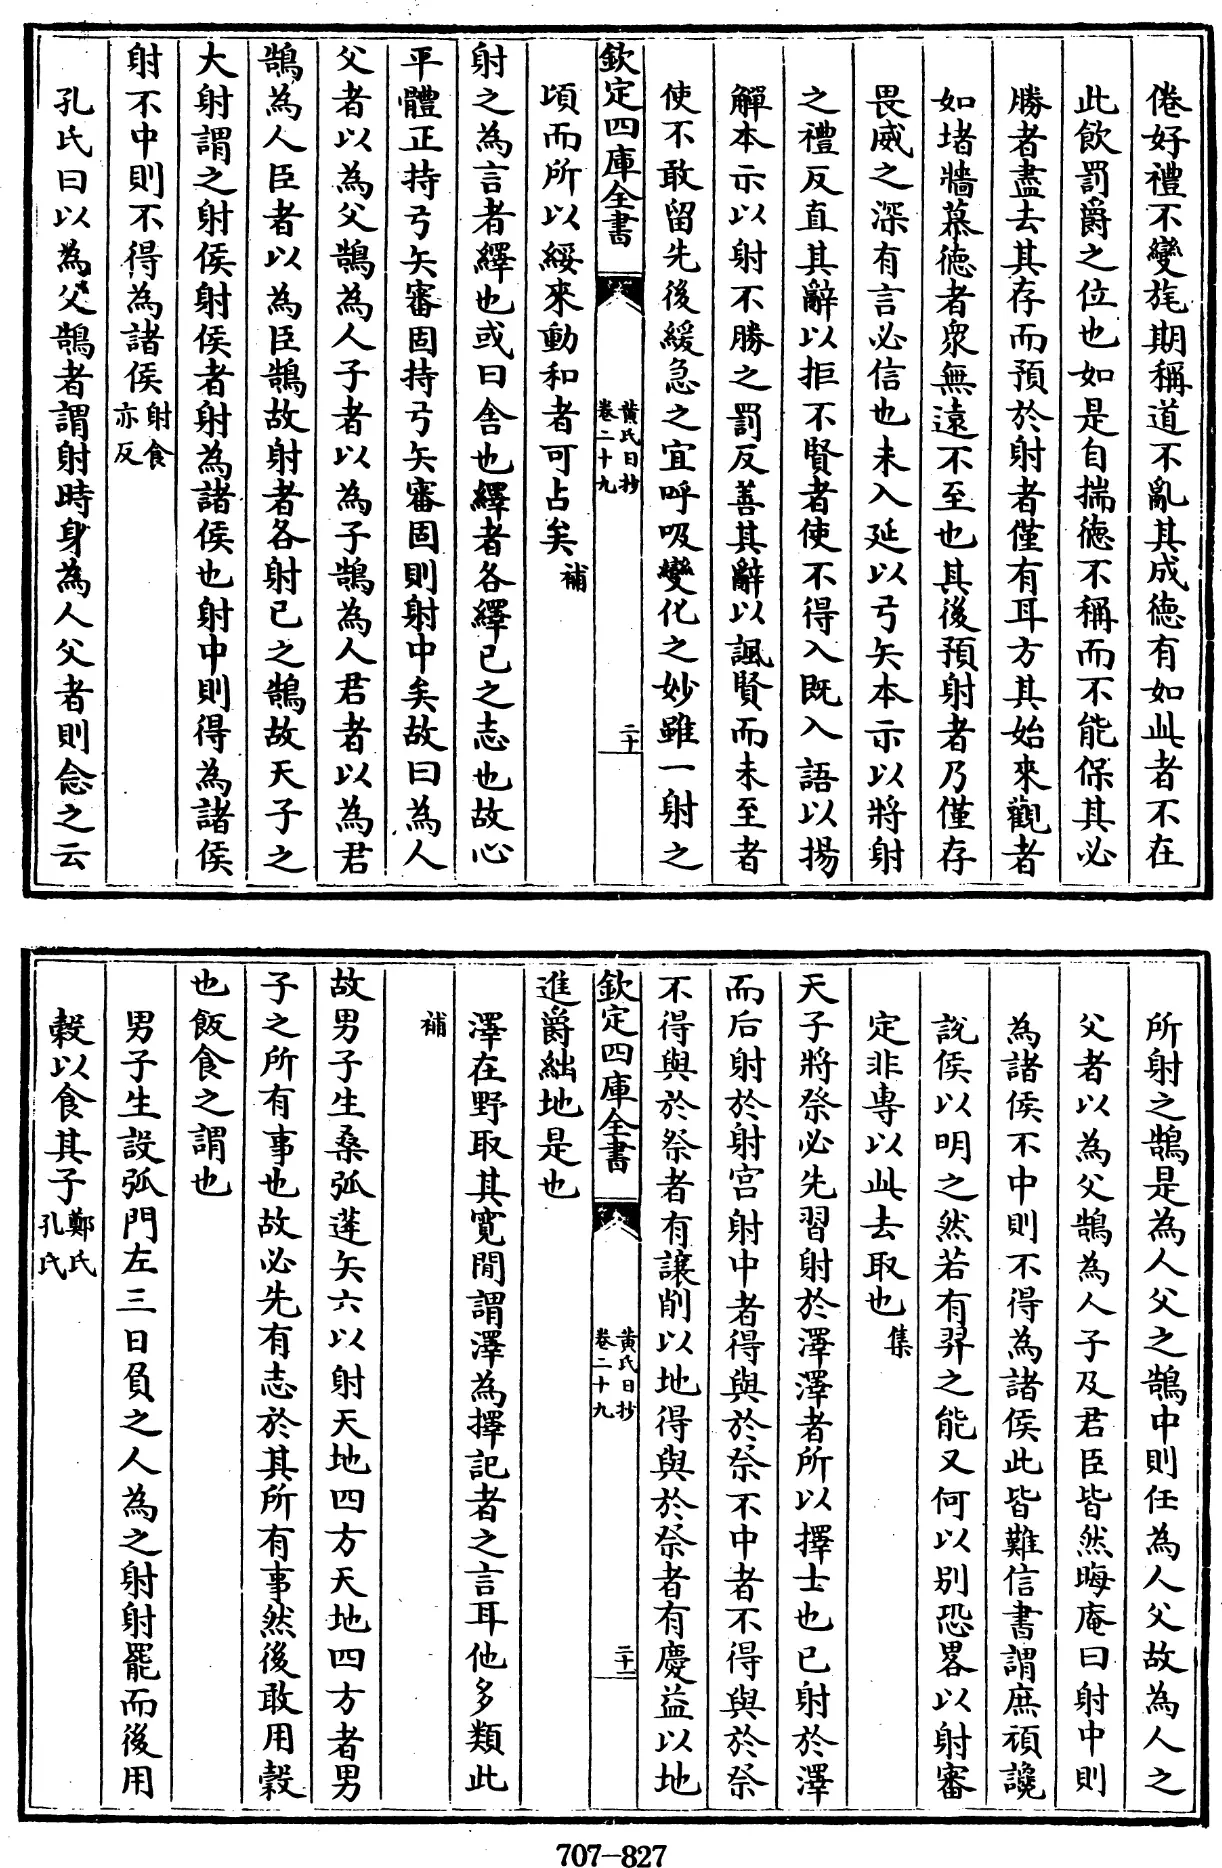 倦好禮不變旄期稱道不亂其成德有如此者不在
此飲罰爵之位也如是自揣德不稱而不能保其必
勝者盡去其存而預於射者僅有耳方其始來觀者
如堵牆慕德者衆無遠不至也其後預射者乃僅存
畏威之深有言必信也未入延以弓矢本示以將射
之禮反直其辭以拒不賢者使不得入既入語以揚
觶本示以射不勝之罰反善其辭以諷賢而未至者
使不敢留先後緩急之宜呼吸變化之妙雖一射之
欽定四庫全書
黃氏日抄
卷二十九
二十
頃而所以綏來動和者可占矣補
射之為言者繹也或曰舍也繹者各繹已之志也故心
平體正持弓矢審固持弓矢審固則射中矣故曰為人
父者以為父鵠為人子者以為子鵠為人君者以為君
鵠為人臣者以為臣鵠故射者各射已之鵠故天子之
大射謂之射侯射侯者射為諸侯也射中則得為諸侯
射不中則不得為諸侯射食
亦反
孔氏曰以為父鵠者謂射時身為人父者則念之云
所射之鵠是為人父之鵠中則任為人父故為人之
父者以為父鵠為人子及君臣皆然晦庵曰射中則
為諸侯不中則不得為諸侯此皆難信書謂庶頑讒
說侯以明之然若有羿之能又何以別恐畧以射審
定非專以此去取也集
天子將祭必先習射於澤澤者所以擇士也已射於澤
而后射於射宮射中者得與於祭不中者不得與於祭
不得與於祭者有讓削以地得與於祭者有慶益以地
欽定四庫全書
黃氏日抄
卷二十九
二十一
進爵絀地是也
澤在野取其寬閒謂澤為擇記者之言耳他多類此
補
故男子生桑弧蓬矢六以射天地四方天地四方者男
子之所有事也故必先有志於其所有事然後敢用穀
也飯食之謂也
男子生設弧門左三日負之人為之射射罷而後用
穀以食其子鄭氏
孔氏
707-827